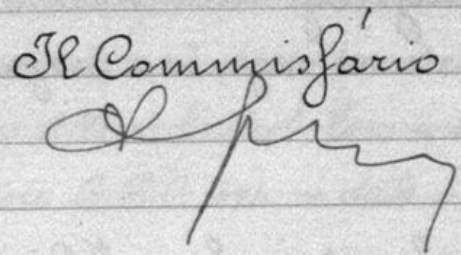 Il Commissário